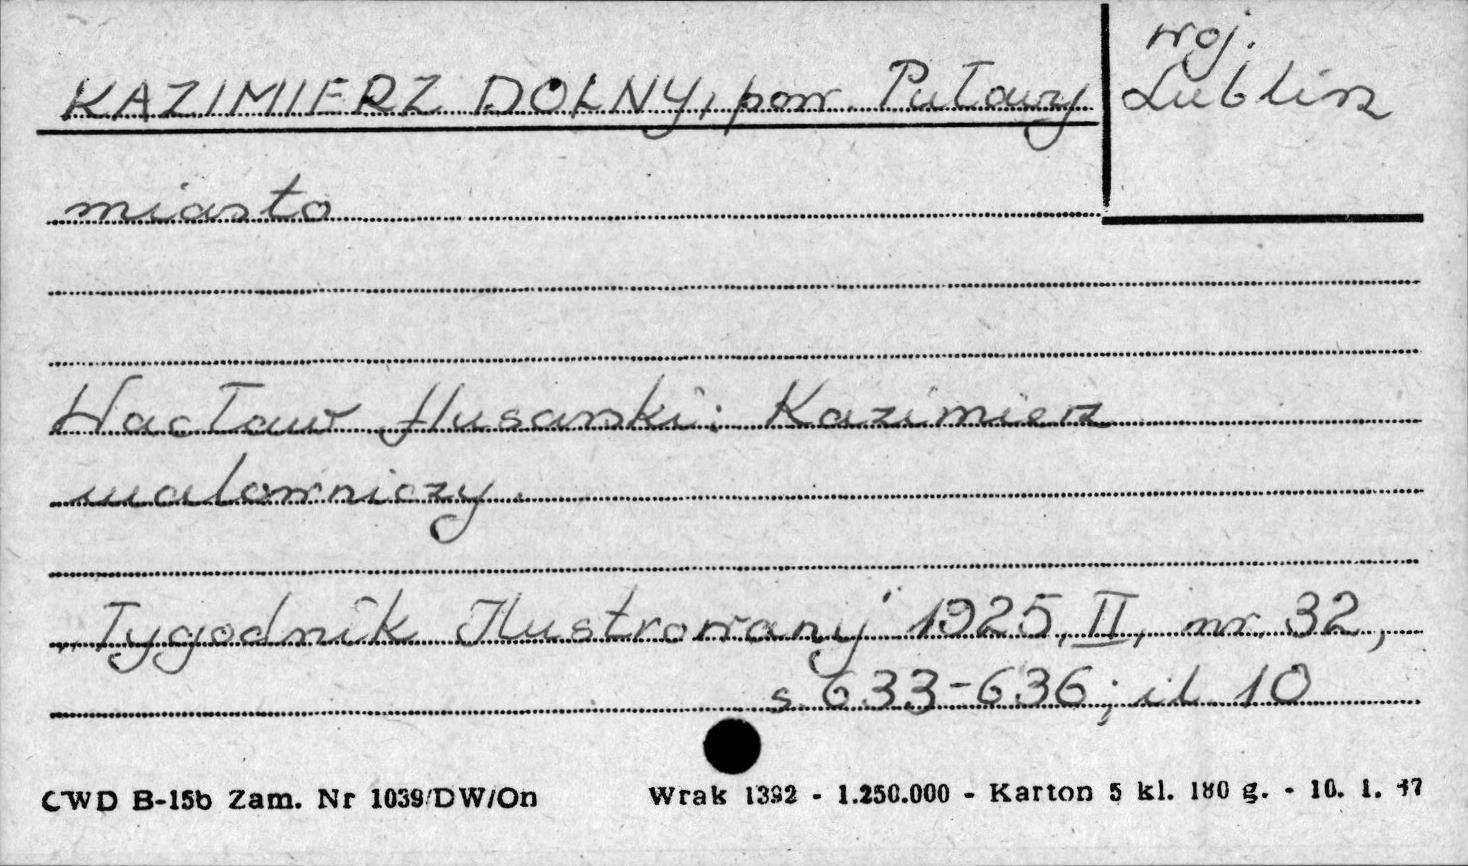 KAZIMIERZ DOLNY, pow. Puławy
woj.
Lublin
miasto
Wacław Husarski: Kazimierz
malowniczy.
„Tygodnik Ilustrowany" 1925, II, nr. 32,
s. 633-636; il. 10
CWD B-15b Zam. Nr 1039/DW/On
Wrak 1392 - 1.250.000 - Karton 5 kl. 180 g. - 10. 1. 47